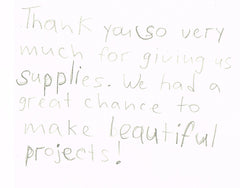 Thank you so very
much for giving us
supplies. We had a
great chance to
make beautiful
projects!